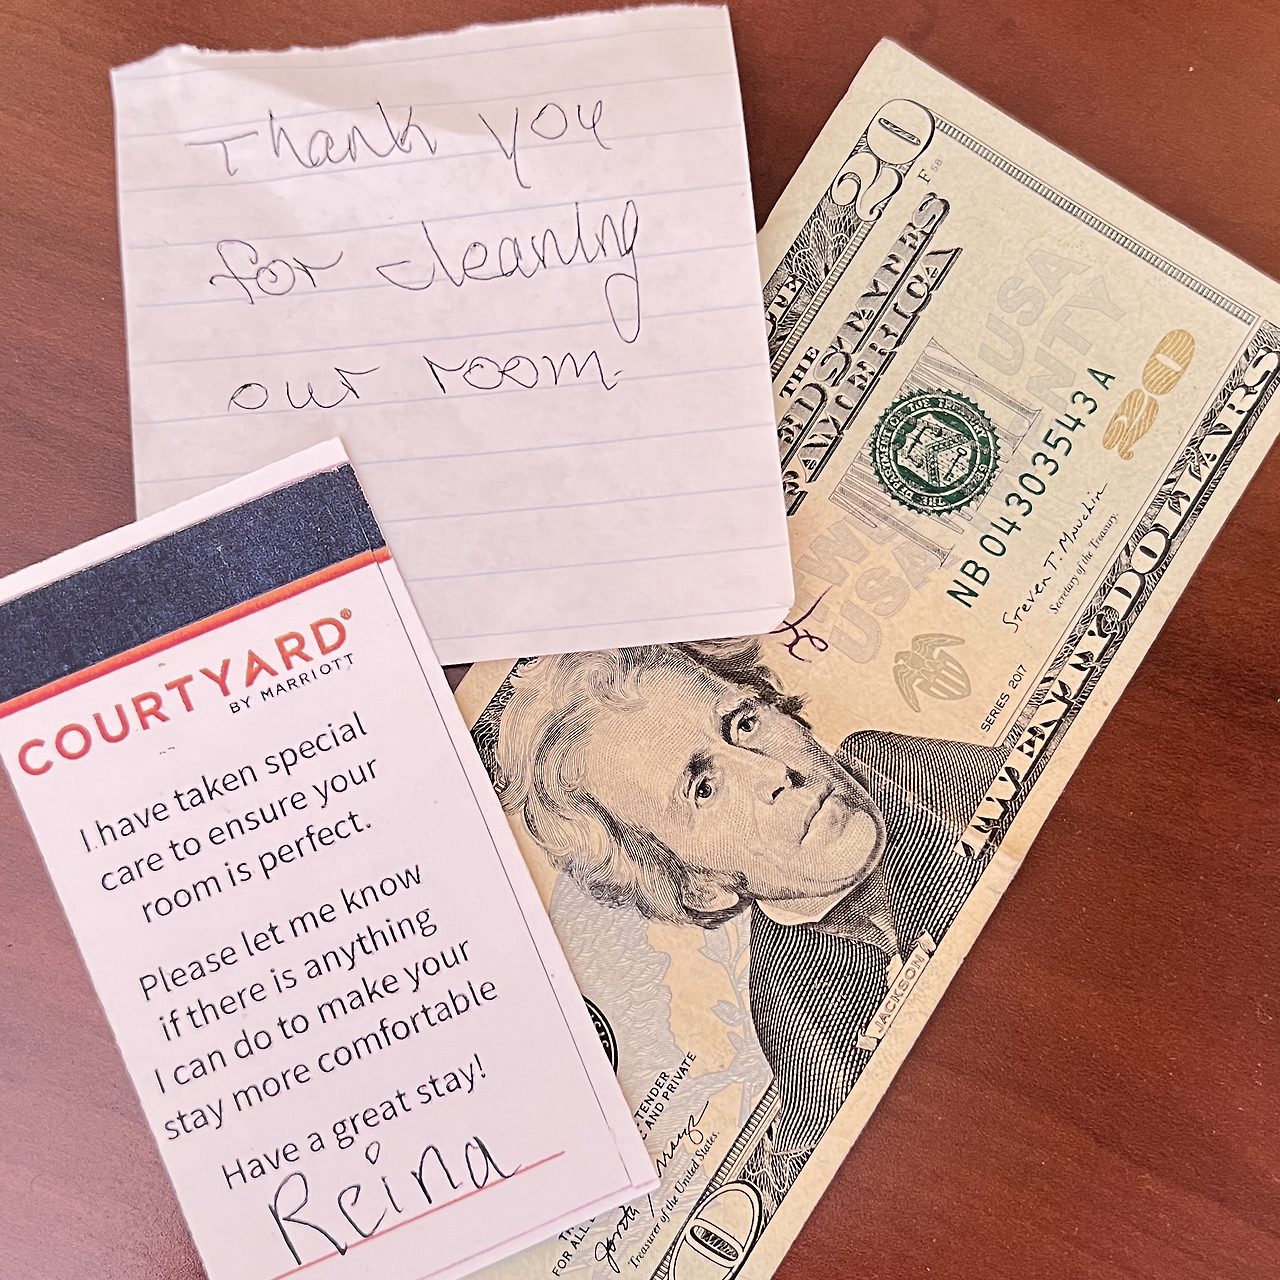 Thank you
for cleaning
our room.
COURTYARD®
BY MARRIOTT
I have taken special
care to ensure your
room is perfect.
Please let me know
if there is anything
I can do to make your
stay more comfortable
Have a great stay!
Reina
20
F 58
THE
AMERICA
USA
20
NB04303543A
Steven T. Mnuchin
Secretary of the Treasury.
SERIES 2017
TWENTY DOLLARS
USA
JACKSON
TENDER
AND PRIVATE
Treasurer of the United States.
FOR ALL